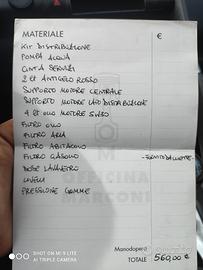 MATERIALE €
KIT DISTRIBUZIONE
POMPA ACQUA
CINTA SERVIZI
2 LT ANTIGELO ROSSO
SUPPORTO MOTORE CENTRALE
SUPPORTO MOTORE LATO DISTRIBUZIONE
4 LT OLIO MOTORE 5W30
FILTRO OLIO
FILTRO ARIA
FILTRO ABITACOLO
FILTRO GASOLIO
DOSE LAVAVETRO
LIVELLI
PRESSIONE GOMME
OFFICINA
MARCONI
Manodopera
TOTALE 560,00 €
SHOT ON MI 9 LITE
AI TRIPLE CAMERA